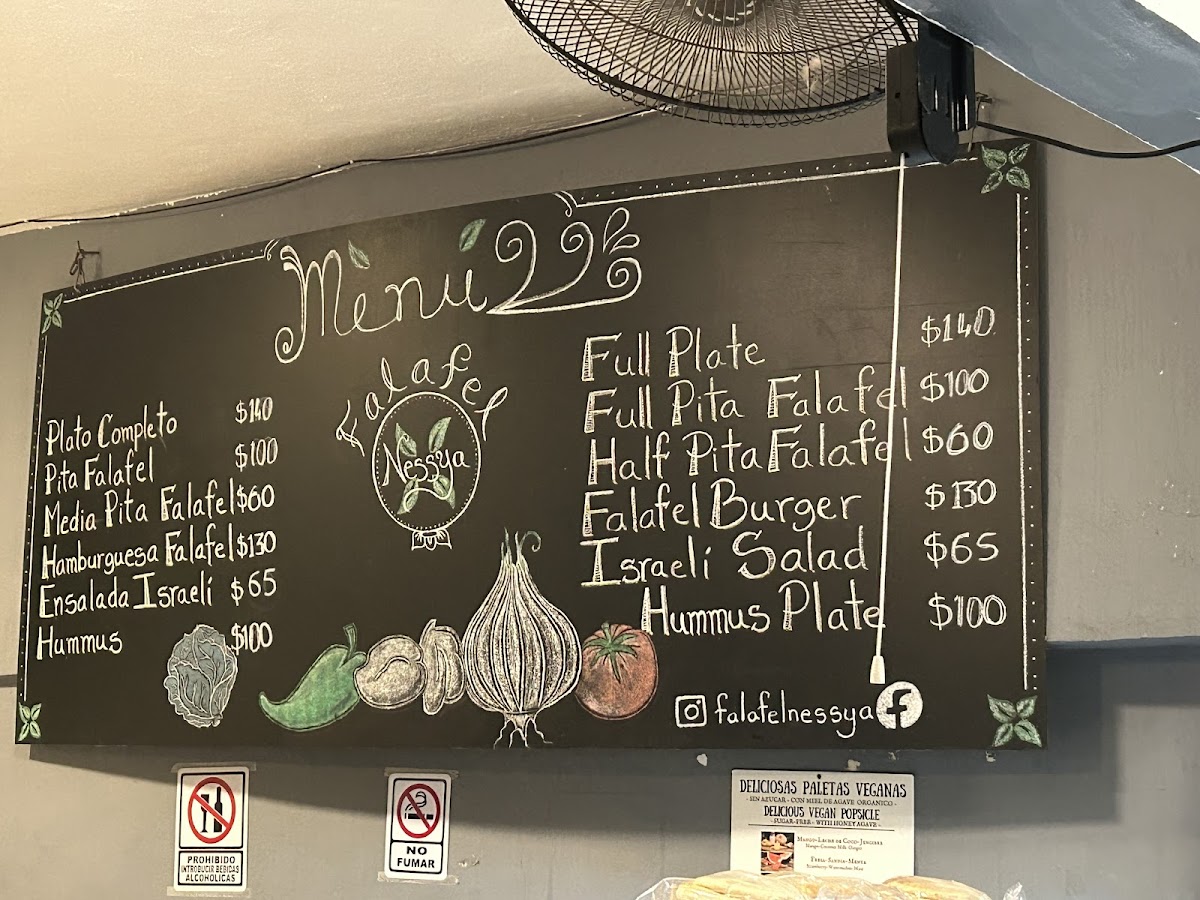 Mènú
Falafel
Nessya
Plato Completo $140
Pita Falafel $100
Media Pita Falafel $60
Hamburguesa Falafel $130
Ensalada Israelí $65
Hummus $100
Full Plate $140
Full Pita Falafel $100
Half Pita Falafel $60
Falafel Burger $130
Israeli Salad $65
Hummus Plate $100
falafelnessya f
PROHIBIDO
INTRODUCIR BEBIDAS
ALCOHOLICAS
NO
FUMAR
DELICIOSAS PALETAS VEGANAS
- SIN AZUCAR - CON MIEL DE AGAVE ORGANICO -
DELICIOUS VEGAN POPSICLE
- SUGAR-FREE - WITH HONEY AGAVE -
MANGO-LECHE DE COCO-JENGIBRE
Mango-Coconut Milk-Ginger
FRESA-SANDIA-MENTA
Strawberry-Watermelon-Mint